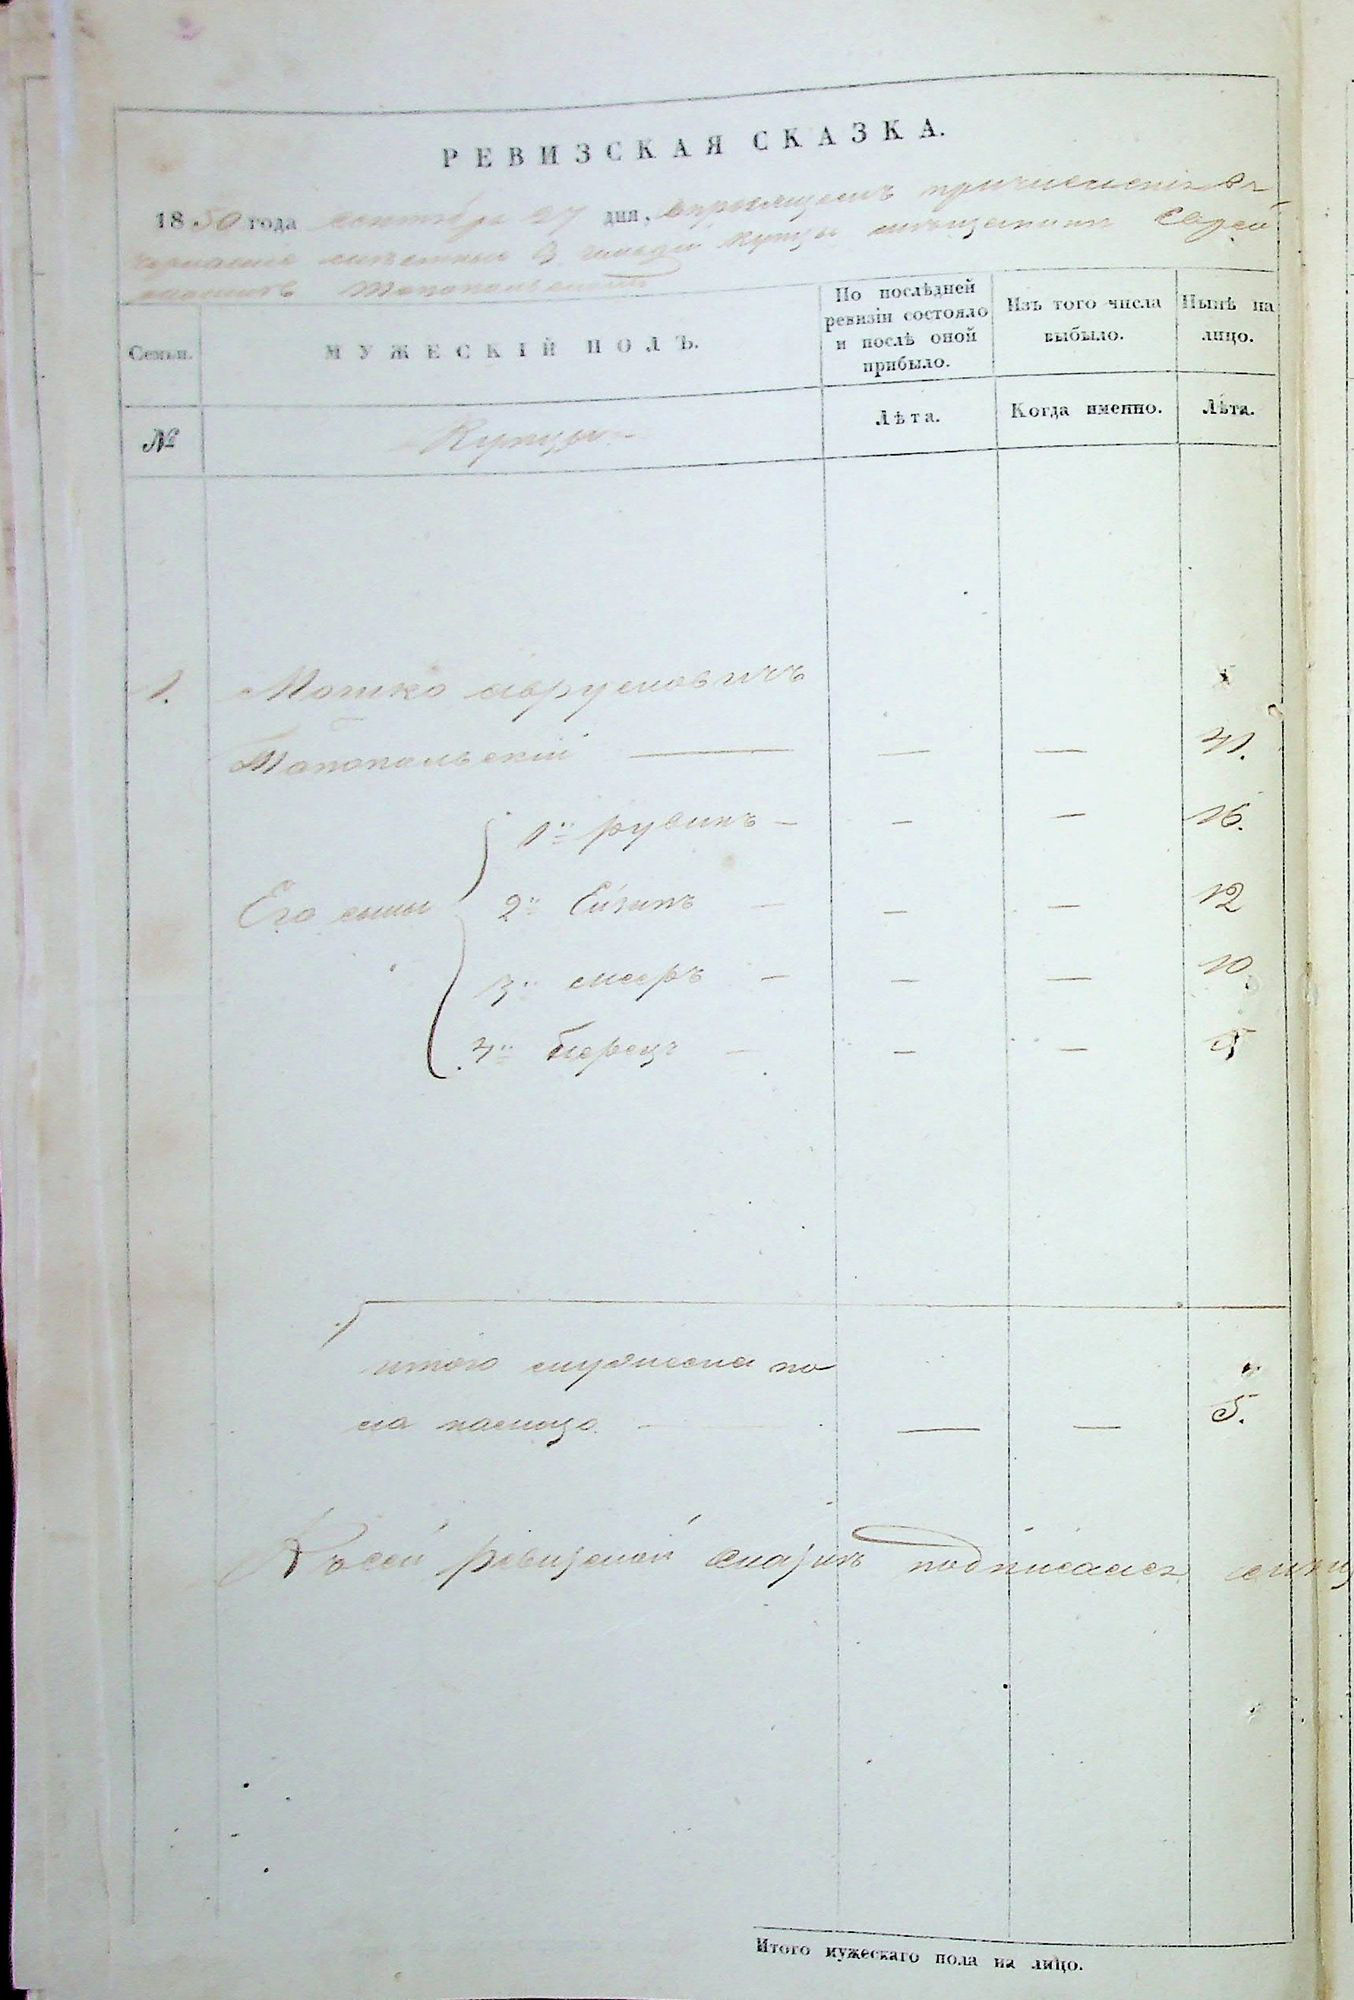 РЕВИЗСКАЯ СКАЗКА.
1850 года сентября 27 дня, опросящемъ причисленія въ
купцы мѣщанинъ
Топопольскій
Семьи.
МУЖЕСКІЙ ПОЛЪ.
По послѣдней ревизіи состояло и послѣ оной прибыло.
Изъ того числа выбыло.
Нынѣ на лицо.
№
Купцы
Лѣта.
Когда именно.
Лѣта.
1. Мошко
Топопольскій — — — 41.
1й рувинъ — — — 16.
Его сыны 2й — — — 12
3й мееръ — — — 10.
4й берецъ — — — 5
итого мужеска по
ла налицо — — — 5.
Ксей ревизской сказкѣ подписался
Итого мужескаго пола на лицо.